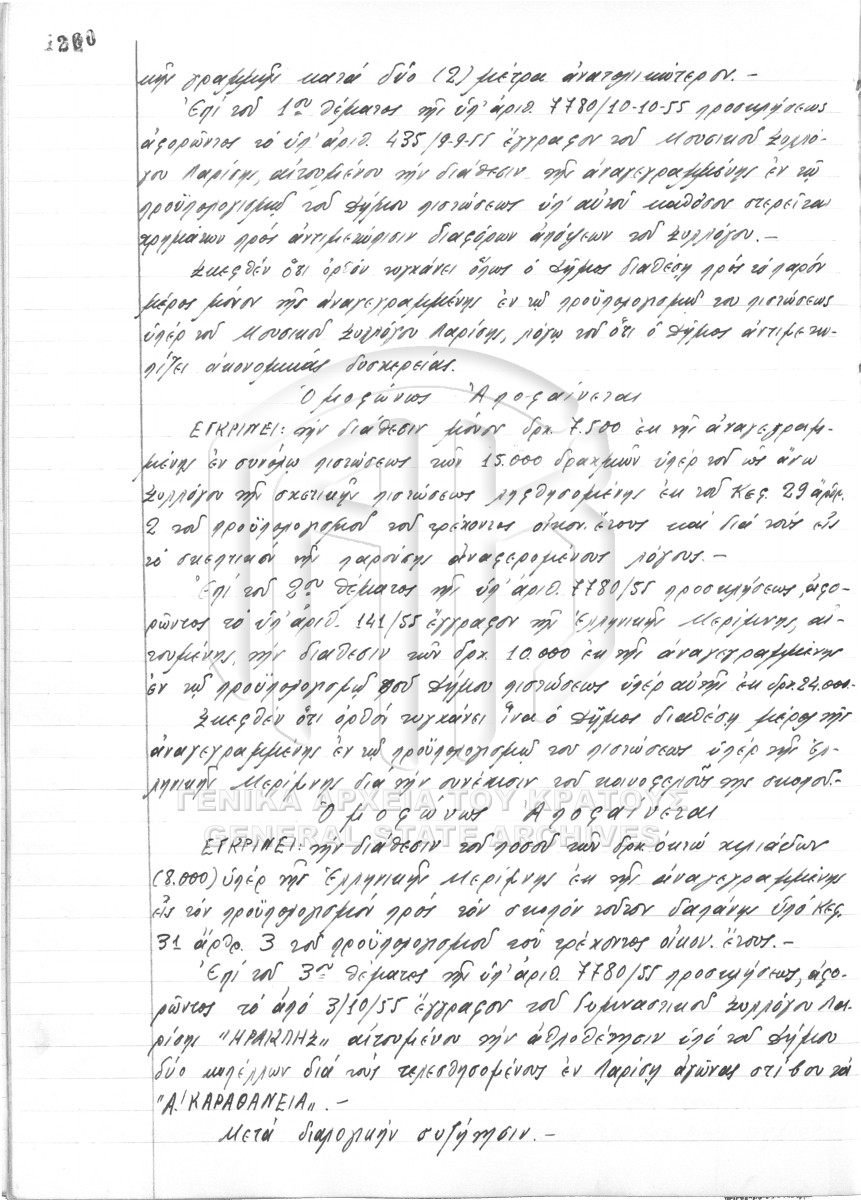 1260
κῆς γραμμῆς κατά δύο (2) μέτρα ἀνατολικώτερον.-
Ἐπί τοῦ 1ου θέματος τῆς ὑπ' ἀριθ. 7780/10-10-55 προσκλήσεως
ἀφορῶντος τό ὑπ' ἀριθ. 435/9-9-55 ἔγγραφον τοῦ Μουσικοῦ Συλλό-
γου Λαρίσης, αἰτουμένου τήν διάθεσιν τῆς ἀναγεγραμμένης ἐν τῷ
προϋπολογισμῷ τοῦ Δήμου πιστώσεως ὑπ' αὐτοῦ καθόσον στερεῖται
χρημάτων πρός ἀντιμετώπισιν διαφόρων ἀπόψεων τοῦ Συλλόγου.-
Σκεφθέν ὅτι ὀρθόν τυγχάνει ὅπως ὁ Δῆμος διαθέσῃ πρός τό παρόν
μέρος μόνον τῆς ἀναγεγραμμένης ἐν τῷ προϋπολογισμῷ του πιστώσεως
ὑπέρ τοῦ Μουσικοῦ Συλλόγου Λαρίσης, λόγῳ τοῦ ὅτι ὁ Δῆμος ἀντιμετω-
πίζει οἰκονομικάς δυσχερείας.
Ὁμοφώνως Ἀποφαίνεται
ΕΓΚΡΙΝΕΙ: τήν διάθεσιν μόνον δρχ. 7.500 ἐκ τῆς ἀναγεγραμ-
μένης ἐν συνόλῳ πιστώσεως τῶν 15.000 δραχμῶν ὑπέρ τοῦ ὡς ἄνω
Συλλόγου τῆς σχετικῆς πιστώσεως ληφθησομένης ἐκ τοῦ Κεφ. 29 ἄρθρ.
2 τοῦ προϋπολογισμοῦ τοῦ τρέχοντος οἰκον. ἔτους καί διά τούς εἰς
τό σκεπτικόν τῆς παρούσης ἀναφερομένους λόγους.-
Ἐπί τοῦ 2ου θέματος τῆς ὑπ' ἀριθ. 7780/55 προσκλήσεως, ἀφο-
ρῶντος τό ὑπ' ἀριθ. 141/55 ἔγγραφον τῆς Ἑλληνικῆς Μερίμνης, αἰ-
τουμένης τήν διάθεσιν τῶν δρχ. 10.000 ἐκ τῆς ἀναγεγραμμένης
ἐν τῷ προϋπολογισμῷ τοῦ Δήμου πιστώσεως ὑπέρ αὐτῆς ἐκ δρχ. 24.000.-
Σκεφθέν ὅτι ὀρθόν τυγχάνει ἵνα ὁ Δῆμος διαθέσῃ μέρος τῆς
ἀναγεγραμμένης ἐν τῷ προϋπολογισμῷ του πιστώσεως ὑπέρ τῆς Ἑλ-
ληνικῆς Μερίμνης διά τήν συνέχισιν τοῦ κοινωφελοῦς της σκοποῦ.-
ΓΕΝΙΚΑ ΑΡΧΕΙΑ ΤΟΥ ΚΡΑΤΟΥΣ
Ὁμοφώνως Ἀποφαίνεται
GENERAL STATE ARCHIVES
ΕΓΚΡΙΝΕΙ: τήν διάθεσιν τοῦ ποσοῦ τῶν δρχ. ὀκτώ χιλιάδων
(8.000) ὑπέρ τῆς Ἑλληνικῆς Μερίμνης ἐκ τῆς ἀναγεγραμμένης
εἰς τόν προϋπολογισμόν πρός τόν σκοπόν τοῦτον δαπάνης ὑπό Κεφ.
31 ἄρθρ. 3 τοῦ προϋπολογισμοῦ τοῦ τρέχοντος οἰκον. ἔτους.-
Ἐπί τοῦ 3ου θέματος τῆς ὑπ' ἀριθ. 7780/55 προσκλήσεως, ἀφο-
ρῶντος τό ἀπό 3/10/55 ἔγγραφον τοῦ Γυμναστικοῦ Συλλόγου Λα-
ρίσης "ΗΡΑΚΛΗΣ" αἰτουμένου τήν ἀθλοθέτησιν ὑπό τοῦ Δήμου
δύο κυπέλλων διά τούς τελεσθησομένους ἐν Λαρίσῃ ἀγῶνας στίβου τά
"Α! ΚΑΡΑΘΑΝΕΙΑ".-
Μετά διαλογικήν συζήτησιν.-